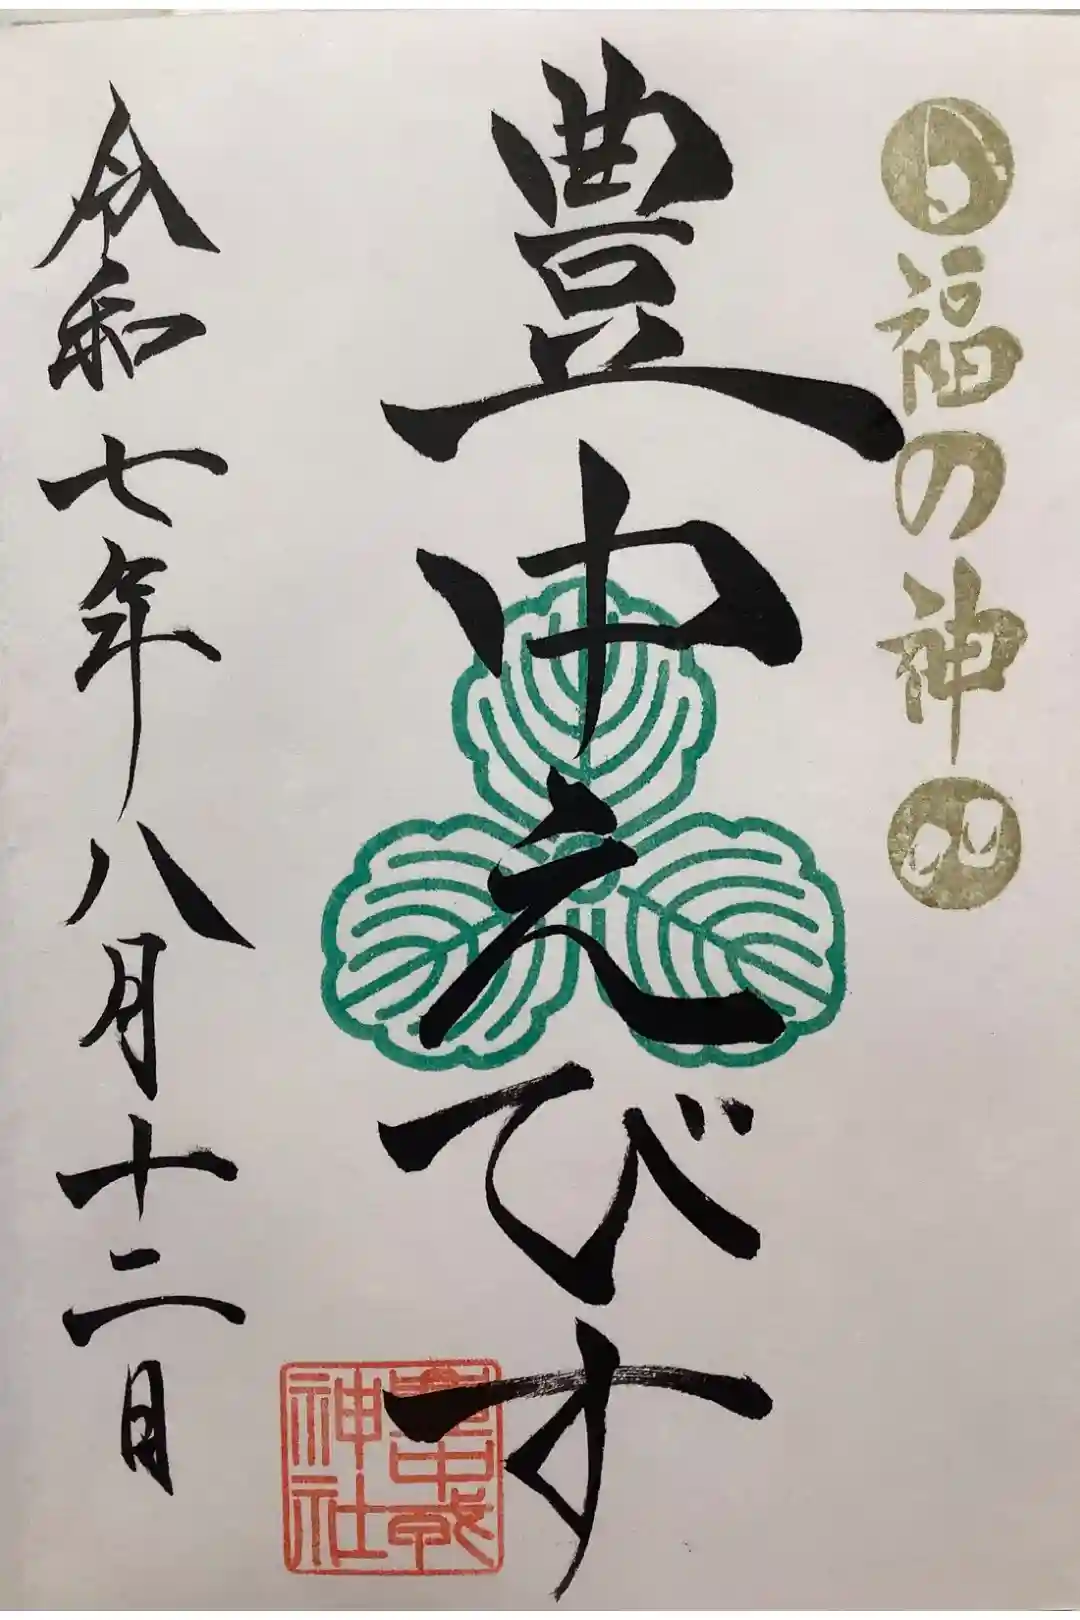 福の神
豊中えびす
豊中戎
神社
令和七年八月十二日